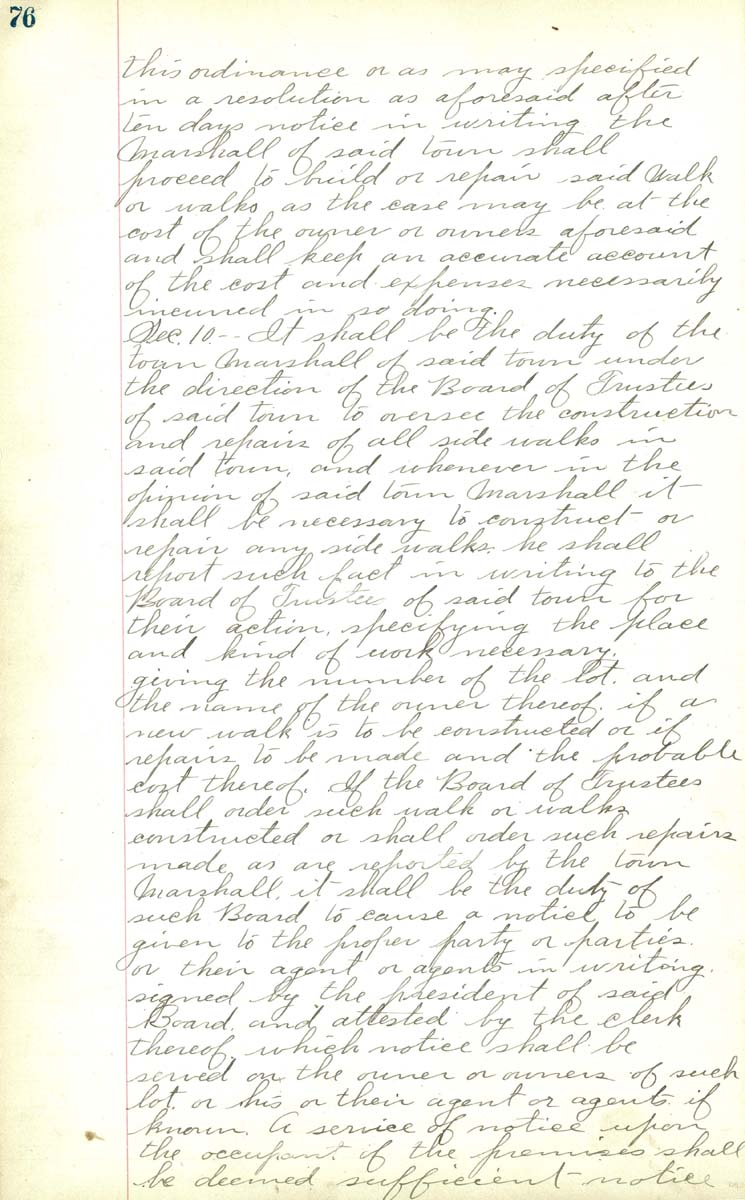 76
this ordinance or as may specified
in a resolution as aforesaid after
ten days notice in writing the
Marshall of said town shall
proceed to build or repair said walk
or walks as the case may be at the
cost of the owner or owners aforesaid
and shall keep an accurate account
of the cost and expenses necessarily
incurred in so doing.
Sec. 10 -- It shall be the duty of the
town Marshall of said town under
the direction of the Board of Trustees
of said town to oversee the construction
and repairs of all side walks in
said town, and whenever in the
opinion of said town Marshall it
shall be necessary to construct or
repair any side walks. he shall
report such fact in writing to the
Board of Trustee of said town for
their action, specifying the place
and kind of work necessary.
giving the number of the lot. and
the name of the owner thereof. if a
new walk is to be constructed or if
repairs to be made and the probable
cost thereof. If the Board of Trustees
shall order such walk or walks
constructed or shall order such repairs
made as are reported by the town
Marshall, it shall be the duty of
such Board to cause a notice to be
given to the proper party or parties.
or their agent or agents in writing.
signed by the president of said
Board. and attested by the clerk
thereof, which notice shall be
served on the owner or owners of such
lot. or his or their agent or agents if
known. A service of notice upon
the occupant. if the premises shall
be deemed sufficient notice